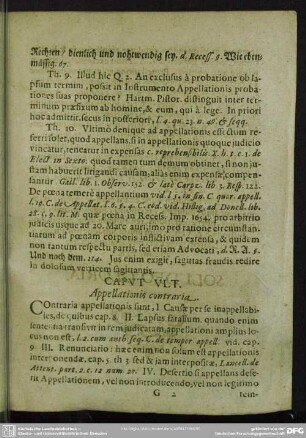 Rechten / dienlich und nohtwendig sey. d. Recess. §. Wie eben
mässig. 67.
Th. 9. Illud hic Q 2. An exclusus à probatione ob la-
psum termini, possit in Instrumento Appellationis proba-
tiones suas proponere? Hartm. Pistor. distinguit inter ter-
minum præfixum ab homine, & eum, qui à lege. In priori
hoc admittit, secus in posteriori, l. 4. qu. 23. n. 48. & seqq.
Th. 10. Ultimò denique ad appellationis effectum re-
ferri solet, quod appellans, si in appellationis quoque judicio
vincatur, teneatur in expensas c. reprehensibilis X. h. t. c. 1. de
Elect in Sexto. quod tamen tum demum obtinet, si non ju-
stam habuerit litigandi causam, alias enim expensæ compen-
santur. Gail. lib. 1. Observ. 152. & latè Carpz. lib 3. Resp. 122.
De pœna temerè appellantium vid. l. 3. in fin. C. quor. appell.
l. 19. C. de Appellat. l. 6. §. 4. C. eod. vid. Hillig. ad Donell. lib.
28. c. 9. lit. M. quæ pœna in Recess. Imp. 1654. pro arbitrio
judicis usque ad 20. Marc. auri, imò pro ratione circumstan-
tiarum ad pœnam corporis afflictivam extensa, & quidem
non tantum respectu partis, sed etiam Advocati, d. R. A. §.
Und nach dem. 114. Jus enim exigit, sagittas fraudis redire
in dolosum, verticem sagittantis.
CAPVT VLT.
Appellationis contraria.
Contraria appellationis sunt, I Causæ per se inappellabi-
les, de quibus cap. 8. II Lapsus fatalium, quando enim
sententia transivit in rem judicatam, appellationi amplius lo-
cus non est, l. 2. cum auth seq. C. de temper appell. vid. cap.
9. III. Renunciatio: hæc enim non solum est appellationis
interponendæ cap. 5. th 3. sed & jam interpositæ, Lancell. de
Attent. part. 2. c. 12 num. 20. IV. Desertio si appellans dese-
rit Appellationem, vel non introducendo, vel non legitimo
G 2
tem-